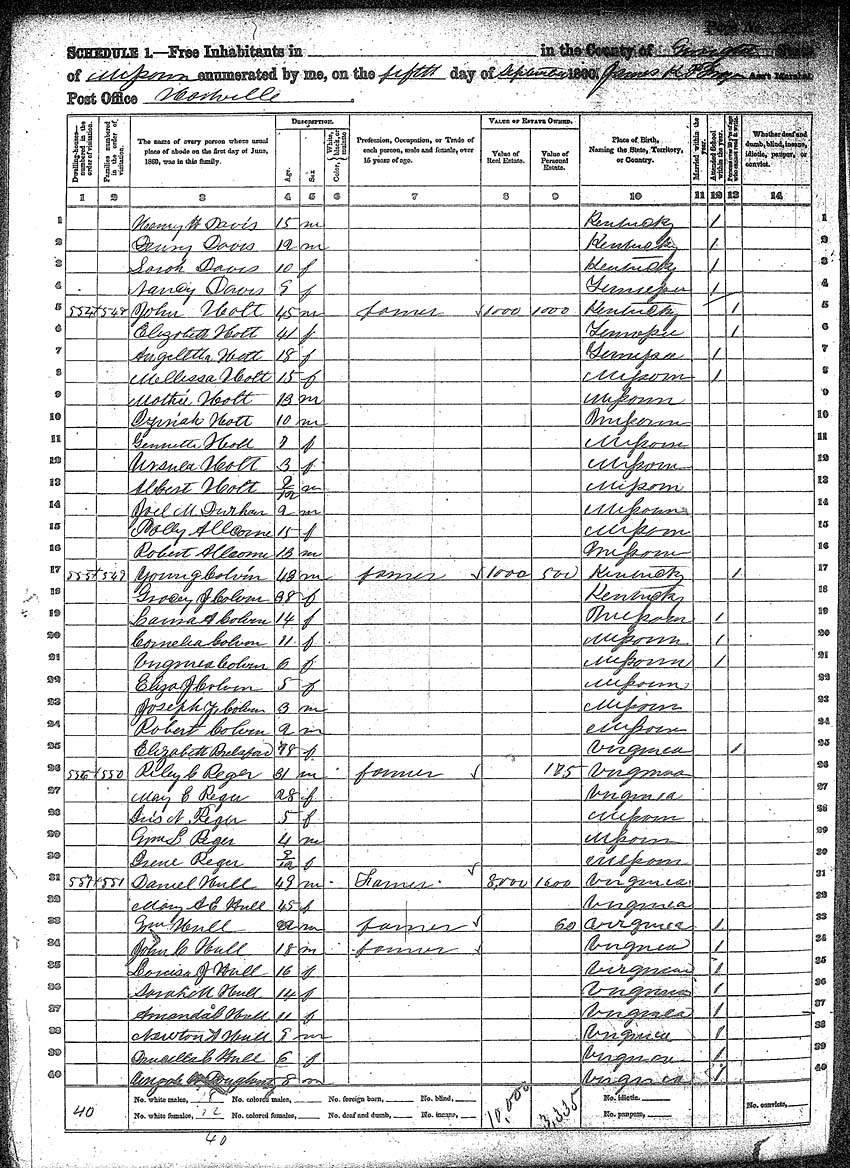 SCHEDULE 1.—Free Inhabitants in in the County of State
of Missouri enumerated by me, on the fifth day of September 1860. James Ass't Marshal
Post Office
Dwelling-houses—numbered in the order of visitation.
Families numbered in the order of visitation.
The name of every person whose usual place of abode on the first day of June, 1860, was in this family.
DESCRIPTION.
Age.
Sex
Color, White, black, or mulatto
Profession, Occupation, or Trade of each person, male and female, over 15 years of age.
VALUE OF ESTATE OWNED.
Value of Real Estate.
Value of Personal Estate.
Place of Birth, Naming the State, Territory, or Country.
Married within the year.
Attended School within the year.
Persons over 20 y'rs of age who cannot read & write.
Whether deaf and dumb, blind, insane, idiotic, pauper, or convict.
1 2 3 4 5 6 7 8 9 10 11 12 13 14
1 Henry W Davis 15 m Kentucky 1 1
2 Davis 12 m Kentucky 1 2
3 Sarah Davis 10 f Kentucky 1 3
4 Nancy Davis 9 f Tennessee 1 4
5 554 548 John Holt 45 m farmer 1000 1000 Kentucky 1 5
6 Elizabeth Holt 41 f Tennessee 1 6
7 Holt 18 f Tennessee 1 7
8 Mellissa Holt 15 f Missouri 1 8
9 Holt 13 m Missouri 9
10 Holt 10 m Missouri 10
11 Holt 7 f Missouri 11
12 Ursula Holt 3 f Missouri 12
13 Albert Holt 9/12 m Missouri 13
14 Joel M Durham 2 m Missouri 14
15 Polly Allcorne 15 f Missouri 15
16 Robert Allcorne 13 m Missouri 16
17 555 549 Young Colvin 42 m farmer 1000 500 Kentucky 1 17
18 J Colvin 38 f Kentucky 18
19 A Colvin 14 f Missouri 1 19
20 Cornelia Colvin 11 f Missouri 1 20
21 Virginia Colvin 6 f Missouri 1 21
22 Eliza J Colvin 5 f Missouri 22
23 Joseph Colvin 3 m Missouri 23
24 Robert Colvin 2 m Missouri 24
25 Elizabeth 78 f Virginia 1 25
26 556 550 Riley C Reger 31 m farmer 175 Virginia 26
27 Mary E Reger 28 f Virginia 27
28 N Reger 5 f Missouri 28
29 Wm L Reger 4 m Missouri 29
30 Irene Reger 9/12 f Missouri 30
31 557 551 Daniel Hull 49 m Farmer 8,000 1600 Virginia 31
32 Mary A E Hull 45 f Virginia 32
33 Wm Hull 22 m farmer 60 Virginia 1 33
34 John C Hull 18 m farmer Virginia 1 34
35 Louisa J Hull 16 f Virginia 1 35
36 Sarah M Hull 14 f Virginia 1 36
37 Amanda Hull 11 f Virginia 1 37
38 Newton Hull 8 m Virginia 1 38
39 Hull 6 f Virginia 1 39
40 8 m Virginia 1 40
40 No. white males, No. colored males, No. foreign born, No. blind, 10,000 3,335 No. idiotic. No. convicts,
No. white females, No. colored females, No. deaf and dumb, No. insane, No. paupers,
40